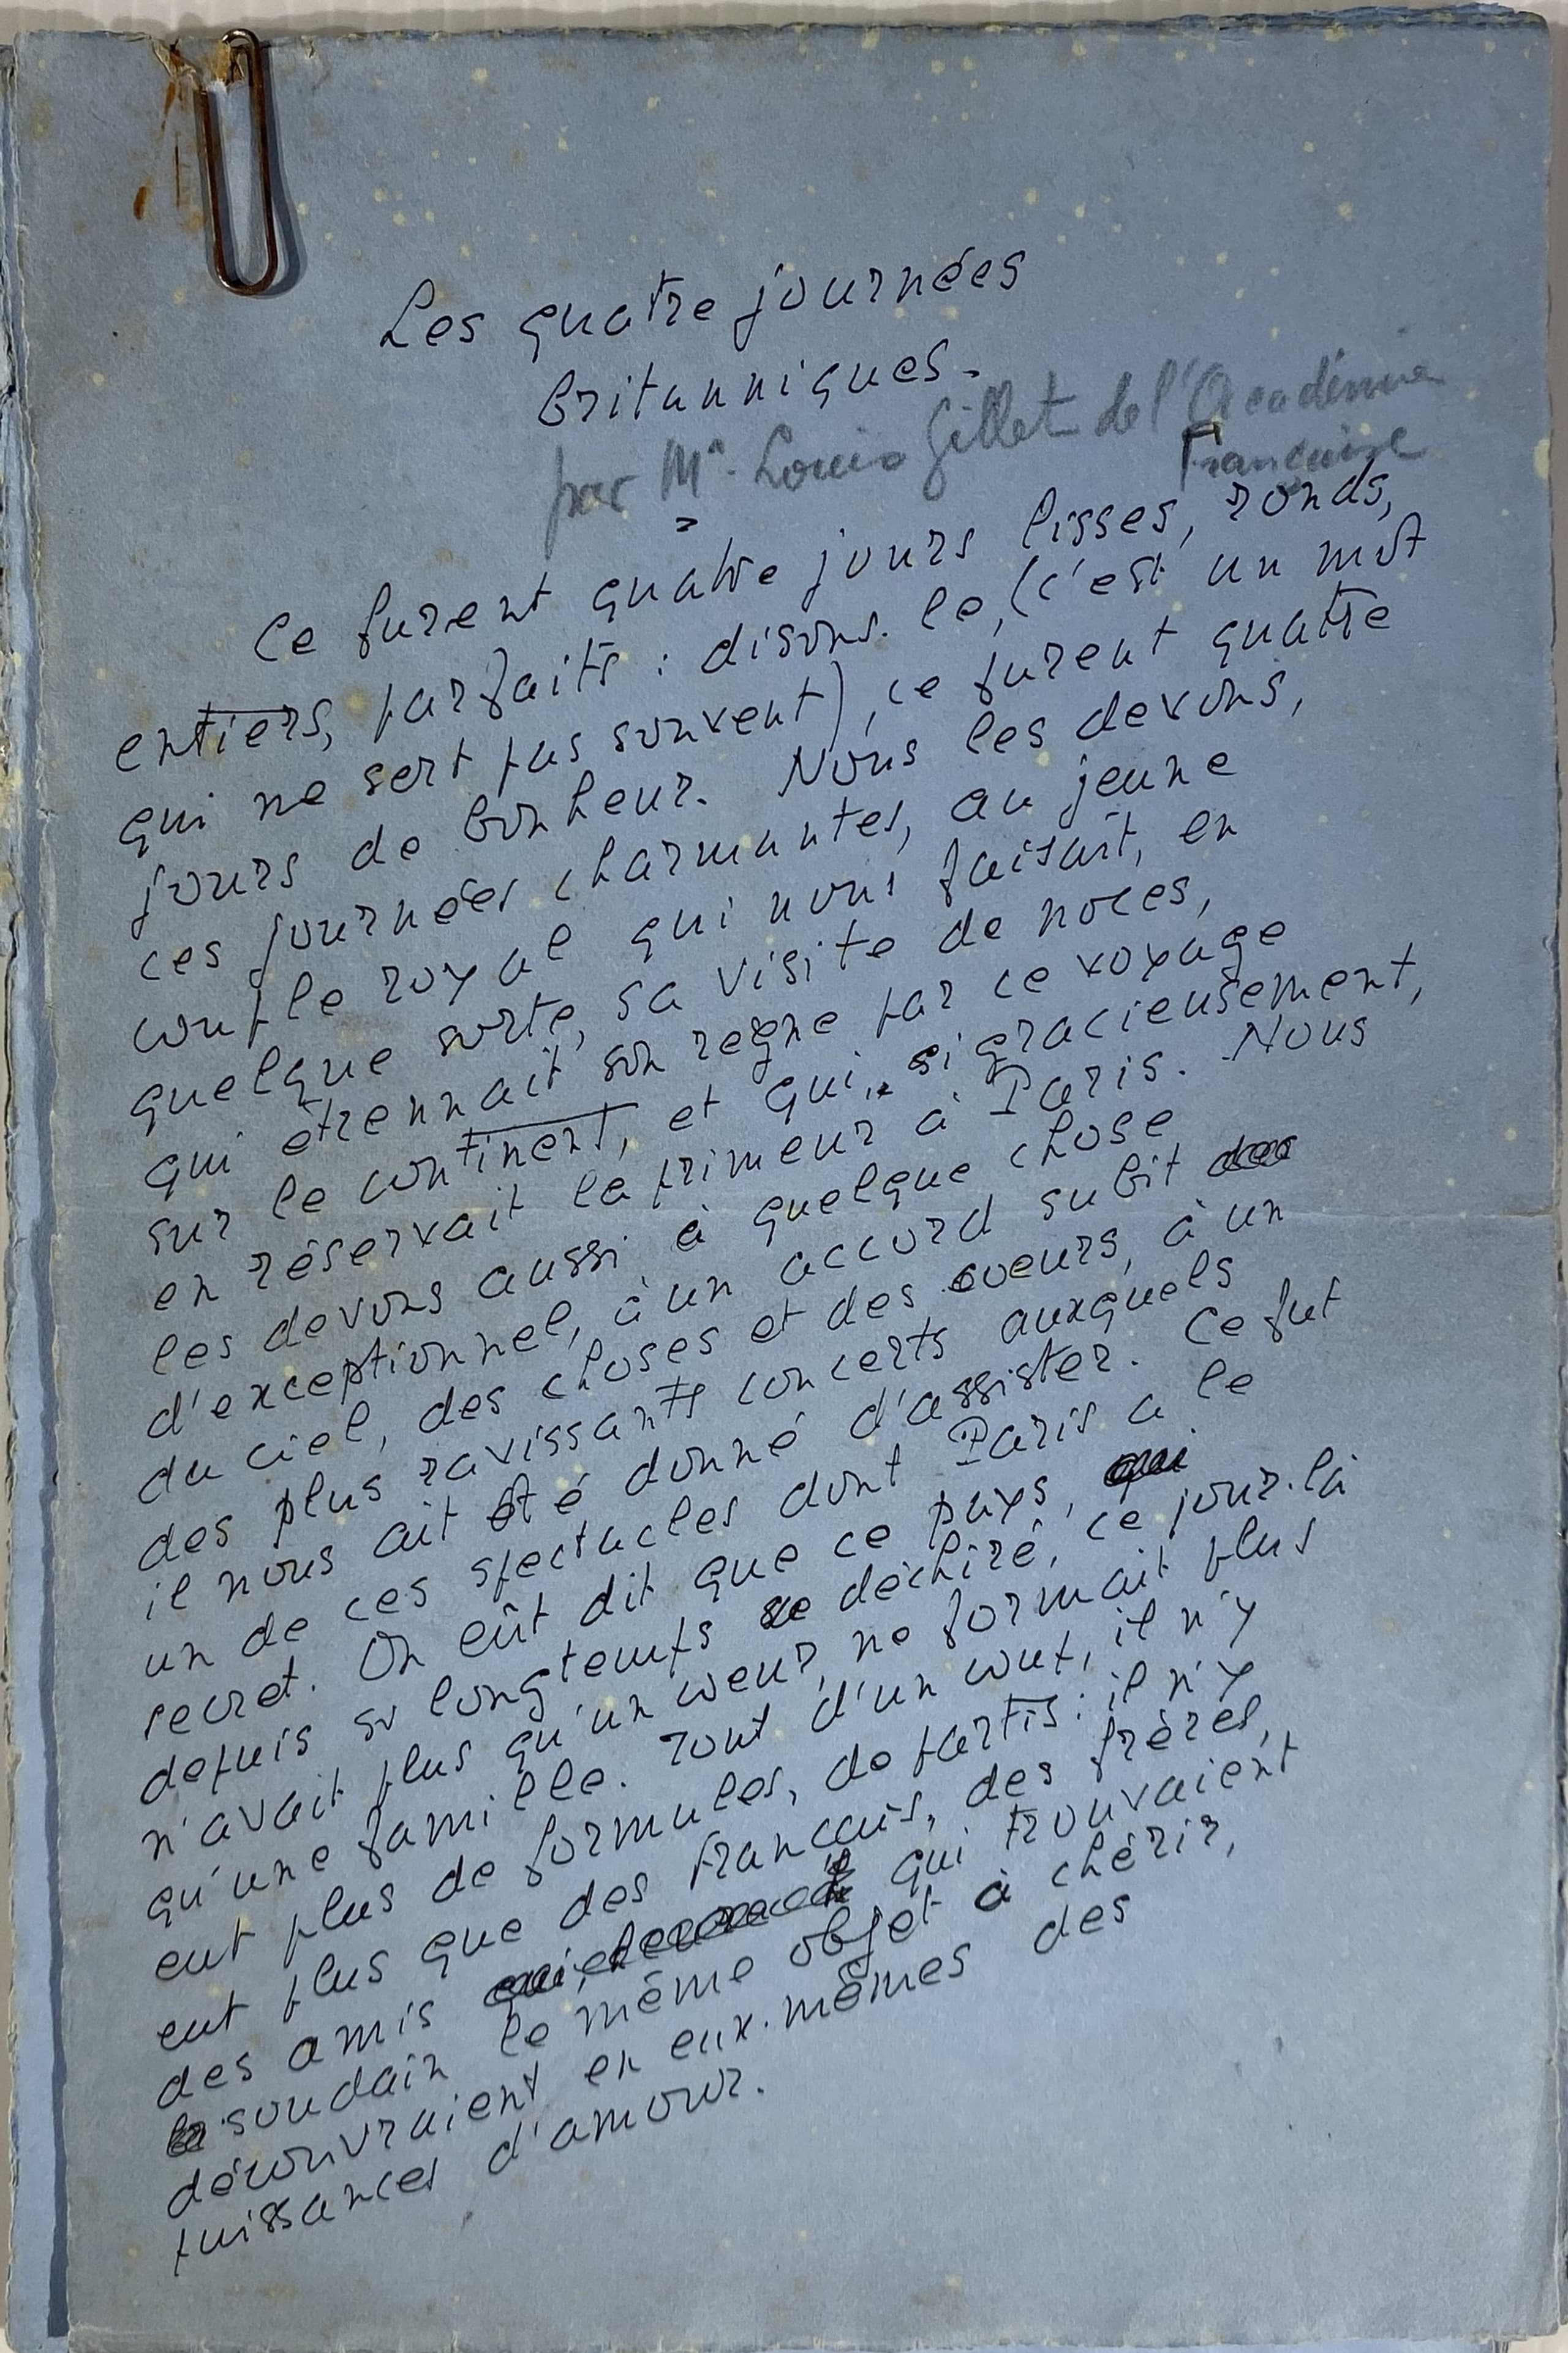 Les quatre journées
britanniques.
par Mr. Louis Gillet de l'Académie
Française
Ce furent quatre jours lisses, ronds,
entiers, parfaits : disons-le, (c'est un mot
qui ne sert pas souvent), ce furent quatre
jours de bonheur. Nous les devons,
ces journées charmantes, au jeune
couple royal qui nous faisait, en
quelque sorte, sa visite de noces,
qui étrennait son règne par ce voyage
sur le continent, et qui, si gracieusement,
en réservait la primeur à Paris. Nous
les devons aussi à quelque chose
d'exceptionnel, à un accord subit
du ciel, des choses et des coeurs, à un
des plus ravissants concerts auxquels
il nous ait été donné d'assister. Ce fut
un de ces spectacles dont Paris a le
secret. On eût dit que ce pays, qui
depuis si longtemps se déchiré, ce jour-là
n'avait plus qu'un coeur, ne formait plus
qu'une famille. Tout d'un cout, il n'y
eut plus de formules, de partis : il n'y
eut plus que des Français, des frères,
des amis qui trouvaient
soudain le même objet à chérir,
découvraient en eux-mêmes des
puissances d'amour.